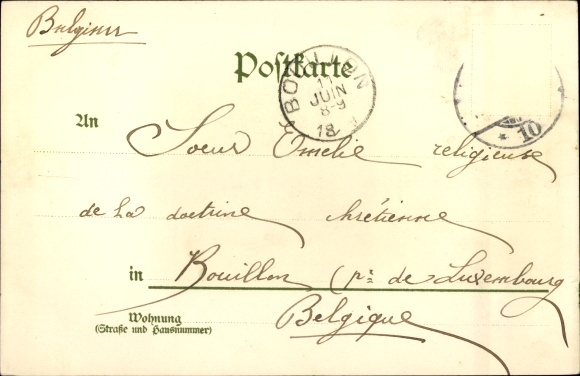 Belgien
Postkarte
BOUILLON
11
JUIN
8-9
18
10
An
Soeur Amélie religieuse
de la doctrine chrétienne
in Bouillon (pr. de Luxembourg
Belgique
Wohnung
(Straße und Hausnummer)